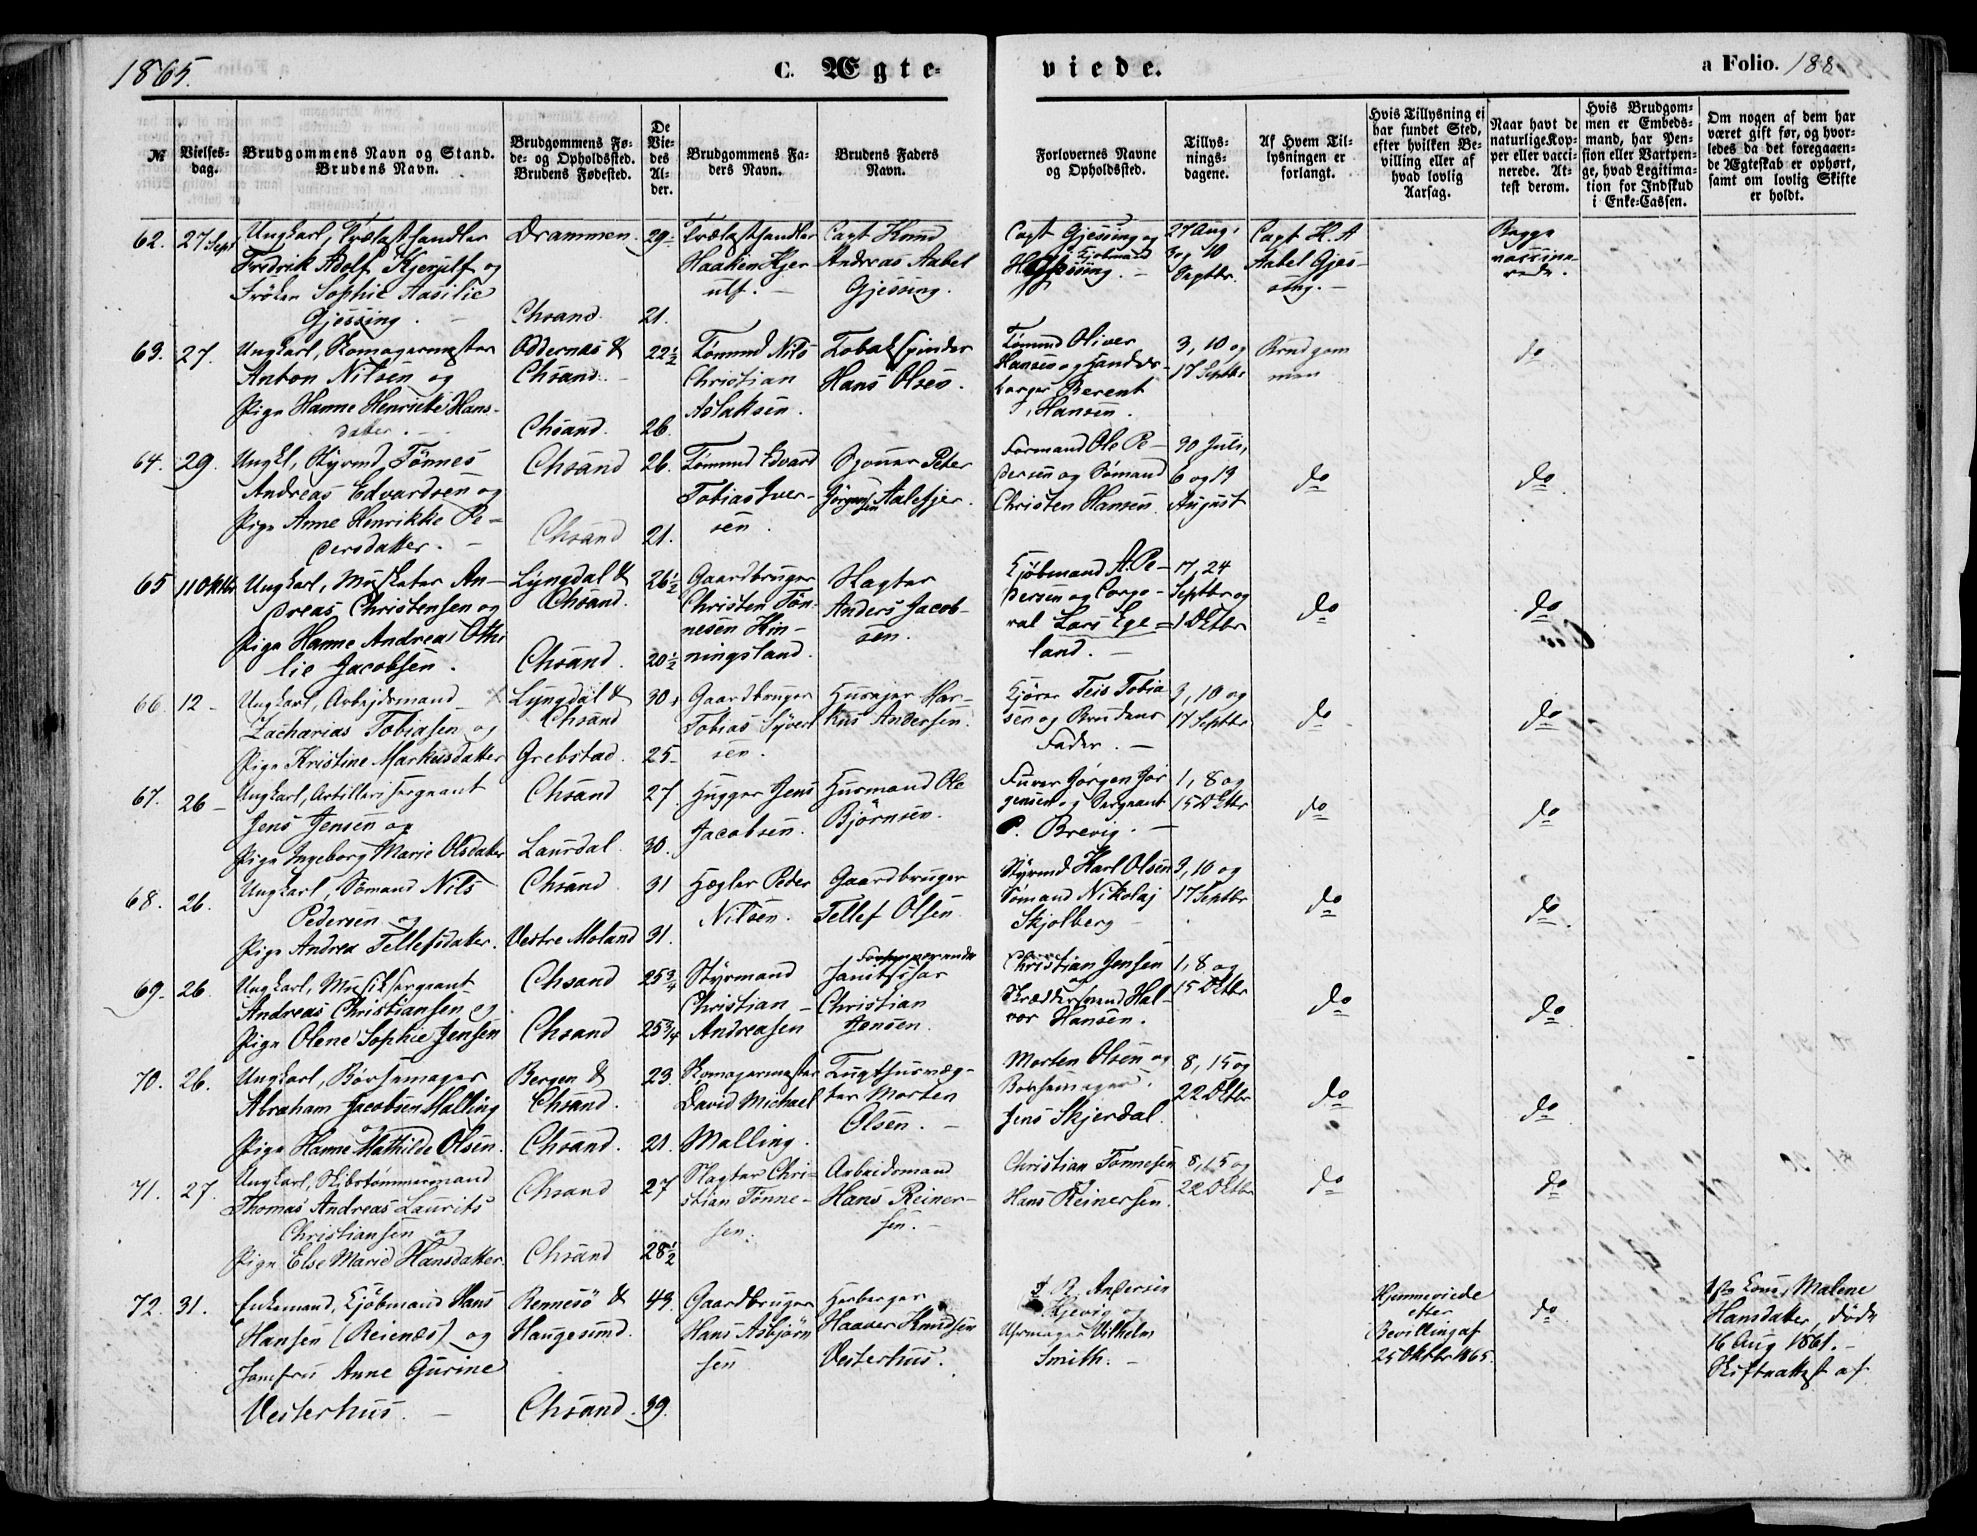 1865.
C. Ægte-
viede.
a Folio. 188
№
Vielses-
dag.
Brudgommens Navn og Stand.
Brudens Navn.
Brudgommens Fø-
de- og Opholdssted.
Brudens Fødested.
De
Vie-
des
Al-
der.
Brudgommens Fa-
ders Navn.
Brudens Faders
Navn.
Forlovernes Navne
og Opholdssted.
Tillys-
nings-
dagene.
Af Hvem Til-
lysningen er
forlangt.
Hvis Tillysning ei
har fundet Sted,
efter hvilken Be-
villing eller af
hvad lovlig
Aarsag.
Naar havt de
naturlige Kop-
per eller vacci-
nerede. At-
test derom.
Hvis Brudgom-
men er Embeds-
mand, har Pen-
sion eller Vartpen-
ge, hvad Legitima-
tion for Indskud
i Enke-Cassen.
Om nogen af dem har
været gift før, og hvor-
ledes da det foregaaen-
de Ægteskab er ophørt,
samt om lovlig Skifte
er holdt.
62.
27 Sept
Ungkarl, Trælasthandler
Fredrik Adolf Kjerulf og
Frøken Sophie Aasilie
Gjessing.
Drammen.
Chsand.
29.
21.
Trælasthandler
Haaken Kjer
ulf.
Capt Knud
Andreas Aabel
Gjessing.
Capt Gjessing og
Kjøbmand
27 Aug,
3 og 10
Septbr.
Capt H. A
Aabel Gjes-
sing.
Begge
vaccine-
rede.
63.
27.
Ungkarl, Skomagermester
Anton Nilsen og
Pige Hanne Henrikke Hans-
datter.
Oddernæs &
Chsand.
Chsand.
22½
26.
Tømmd Nils
Christian
Aslaksen.
Tobakspinder
Hans Olsen.
Tømmd Oliver
Hansen og Handels-
borger Berent
Hansen.
3, 10 og
17 Septbr
Brudgom
men
do
64.
29.
Ungkl, Styrmd Tönnes
Andreas Edvardsen og
Pige Anne Henrikke Pe-
dersdatter.
Chsand
Chsand
26.
21.
Tømmd Edvard
Tobias Iver-
sen.
Sjouer Peter
Jørgensen Aalefjer.
Formand Ole Pe-
dersen og Sømand
Christen Hansen.
30 Juli,
6 og 13
August
do
do
65
11 Oktbr
Ungkarl, Musketer An-
dreas Christensen og
Pige Hanne Andrea Othi
lie Jacobsen.
Lyngdal &
Chsand.
Chsand.
26½
20½
Gaardbruger
Christen Tøn-
nesen Kin-
ningsland.
Slagter
Anders Jacob-
sen.
Kjøbmand A. Pe-
dersen og Corpo-
ral Lars Ege-
land.
17, 24
Septbr og
1 Oktbr
do
do
66.
12
Ungkarl, Arbejdsmand
Zacharias Tobiasen og
Pige Kristine Markusdatter
Lyngdal &
Chsand
Grebstad.
30.
25
Gaardbruger
Tobias Syvert
sen.
Husejer Mar-
kus Andersen.
Kjører Teis Tobia
sen og Brudens
Fader.
3, 10 og
17 Septbr
do
do
67.
26
Ungkarl, Artillerisergeant
Jens Jensen og
Pige Ingeborg Marie Olsdatter
Chsand
Laurdal.
27.
30.
Hugger Jens
Jacobsen.
Husmand Ole
Björnsen.
Furer Jørgen Jør
gensen og Sergeant
P. Brevig.
1, 8 og
15 Oktbr
do
do
68.
26.
Ungkarl, Sömand Nils
Pedersen og
Pige Andrea Tellefsdatter.
Chsand
Vestre Moland
31
31.
Hægler Peder
Nilsen.
Gaardbruger
Tellef Olsen.
Styrmd Karl Olsen
Sømand Nikolaj
Skjolberg
3, 10 og
17 Septbr
do
do
69.
26.
Ungkarl, Musiksergeant
Andreas Christiansen og
Pige Olene Sophie Jensen
Chsand
Chsand
25¾
25¾
Styrmand
Christian
Andreasen
Forhenværende
Janitschar
Christian
Jensen.
Christian Jensen
og
Skræddersvend Hal-
vor Hansen.
1, 8 og
15 Oktbr
do
do
70.
26.
Ungkarl, Børsemager
Abraham Jacobsen Malling
og
Pige Hanne Mathilde Olsen.
Bergen &
Chsand.
Chsand.
23.
21.
Skomagermester
David Michael
Malling.
Tugthusvæg-
ter Morten
Olsen.
Morten Olsen og
Børsemager
Jens Skjerdal.
8, 15 og
22 Oktbr
do
do
71.
27.
Ungkarl, Skibstømmermand
Thomas Andreas Laurits
Christiansen og
Pige Else Marie Hansdatter.
Chsand
Chsand
27
28½
Slagter Chri-
stian Tønne-
sen.
Arbeidsmand
Hans Reiner-
sen.
Christian Tønnesen
og
Hans Reinersen.
8, 15 og
22 Oktbr
do
do
72.
31.
Enkemand, Kjøbmand Hans
Hansen (Reienæs) og
Jomfru Anne Gurine
Vesterhus.
Rennesö &
Haugesund.
Chsand.
43.
39.
Gaardbruger
Hans Asbjørn
sen
Herberger
Haaver Knudsen
Vesterhus.
Andersen
Kjevig og
Uhrmager Vilhelm
Smith.
Hjemmeviede
efter
Bevilling af
25 Oktbr 1865.
do
1ste Kone, Malene
Hansdatter, døde
16 Aug 1861.
Skifteattest af